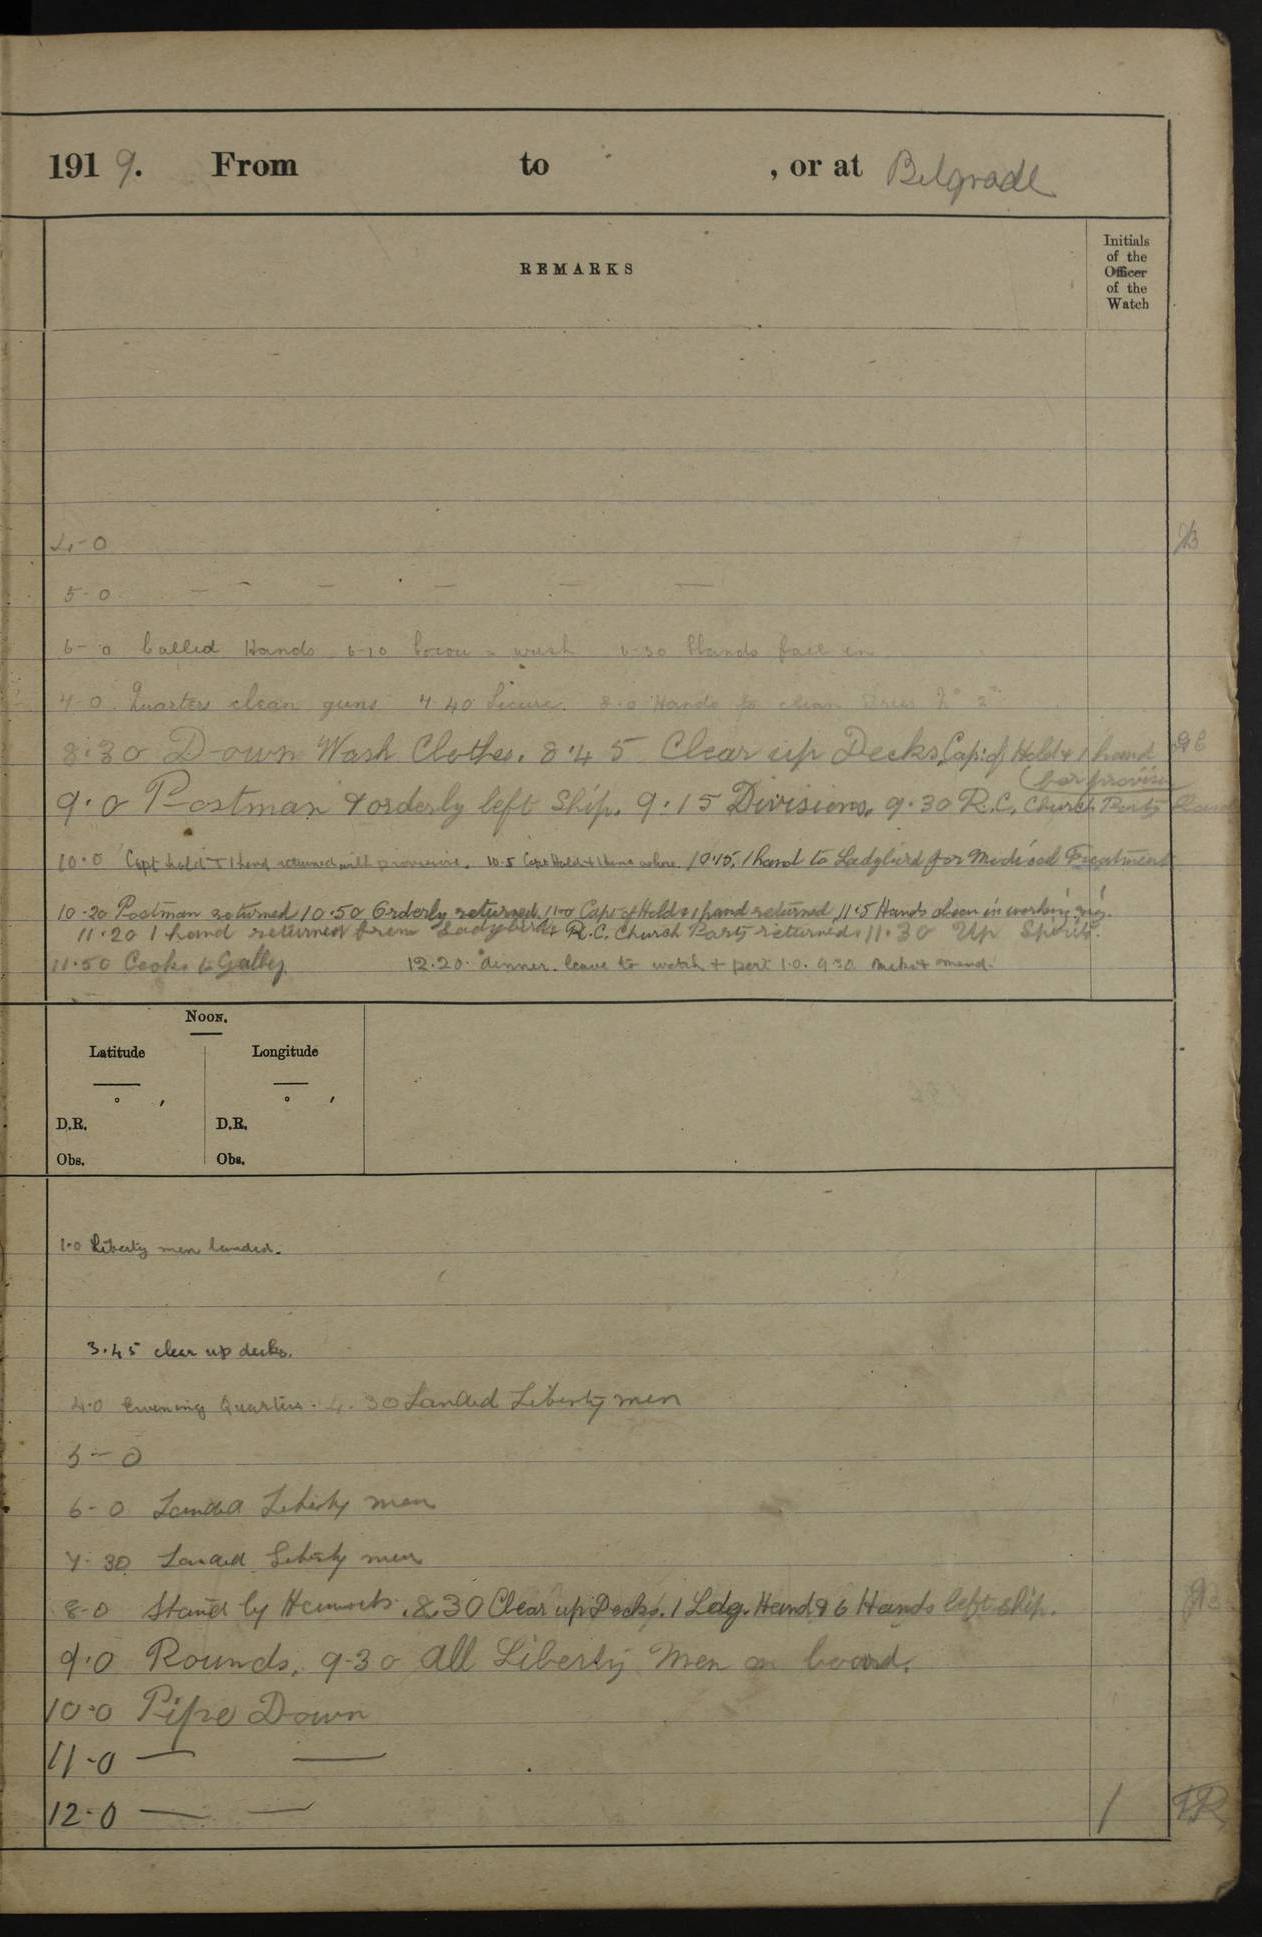 1919. From to , or at Belgrade
REMARKS
Initials of the Officer of the Watch
4-0
5-0 — — — — — —
6-0 Called Hands 6-10 Cocoa & wash 6-30 Hands fall in
7-0 Quarters clean guns 7.40 Secure. 8.0 Hands to clean Dress No 2
8.30 Down Wash Clothes. 8.45 Clear up Decks, Capt of Hold & 1 hand
(for provision
9.0 Postman & orderly left Ship. 9.15 Divisions. 9.30 R.C. Church Party
10.0 Capt hold & 1 hand returned with provisions. 10.5 Capt Hold & 1 hand ashore. 10.15, 1 hand to Ladybird for Medical Treatment
10-20 Postman returned 10.50 Orderly returned. 11-0 Capt of Hold & 1 hand returned, 11.5 Hands clean in working rig.
11.20 1 hand returned from Ladybird & R.C. Church Party returned. 11.30 Up Spirits.
11.50 Cooks to Galley 12.20. dinner. leave to watch & part 1.0. 9.30 make & mend.
NOON.
Latitude Longitude
° ′ ° ′
D.R. D.R.
Obs. Obs.
1.0 Liberty men landed.
3.45 clear up decks.
4.0 Evening Quarters. 4.30 Landed Liberty men
5-0
6-0 Landed Liberty men
7.30 Landed Liberty men
8-0 Stand by Hammocks. 8.30 Clear up Decks. 1 Ldg. Hand & 6 Hands left ship.
9.0 Rounds. 9-30 All Liberty Men on board.
10.0 Pipe Down
11-0 — —
12-0 — —